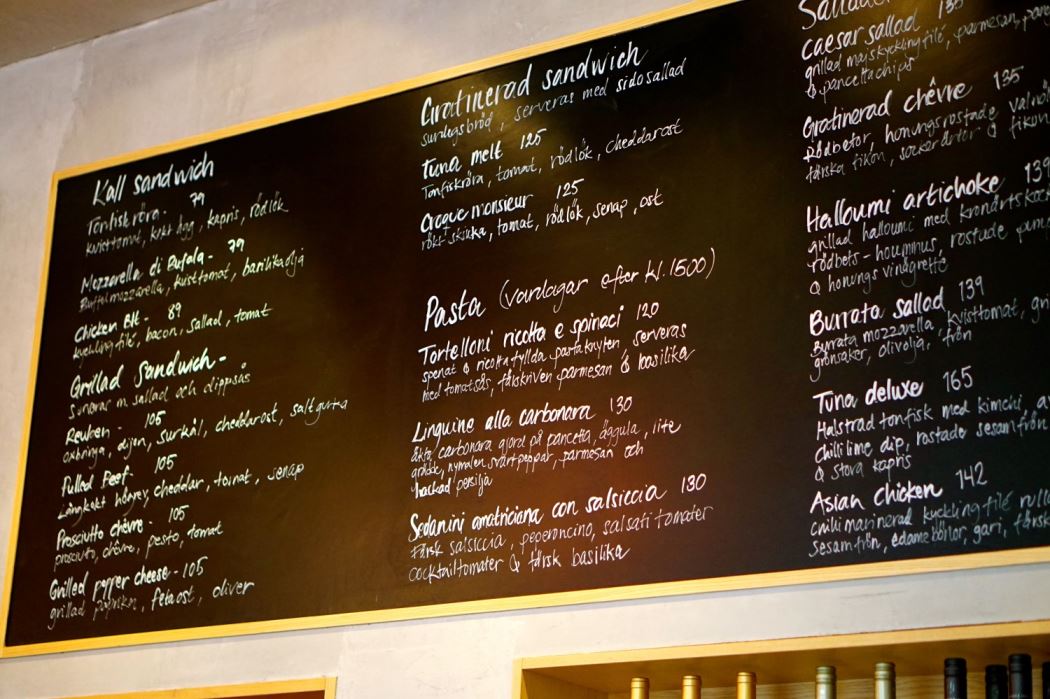 Kall sandwich
Tonfiskröra - 79
kvisttomat, kokt ägg, kapris, rödlök
Mozzarella di Bufala - 79
Buffelmozzarella, kvisttomat, basilikaolja
Chicken Blt - 89
kyckling filé, bacon, sallad, tomat
Grillad sandwich -
serveras m. sallad och dippsås
Reuben - 105
oxbringa, dijon, surkål, cheddarost, saltgurka
Pulled Beef 105
Långkokt högrev, cheddar, tomat, senap
Prosciutto chèvre - 105
prosciuto, chèvre, pesto, tomat
Grilled pepper cheese - 105
grillad paprika, fetaost, oliver
Gratinerad sandwich
surdegsbröd, serveras med sidosallad
Tuna melt 125
Tonfiskröra, tomat, rödlök, cheddarost
Croque monsieur 125
rökt skinka, tomat, rödlök, senap, ost
Pasta (vardagar efter kl. 1500)
Tortelloni ricotta e spinaci 120
spenat & ricotta fyllda pastaknyten, serveras
med tomatsås, färskriven parmesan & basilika
Linguine alla carbonara 130
äkta carbonara gjord på pancetta, äggula, lite
grädde, nymalen svartpeppar, parmesan och
hackad persilja
Sedanini amatriciana con salsiccia 130
Färsk salsiccia, peperoncino, salsati tomater
cocktailtomater & färsk basilika
Sallader
Caesar sallad 135
grillad majskycklingfilé, parmesan,
& pancettachips
Gratinerad chêvre 135
Rödbetor, honungsrostade
färska fikon, sockerärtor & fikon
Halloumi artichoke 139
grillad halloumi med
rödbets-houmnus, rostade
& honungs vinägrette
Burrata sallad 139
Burrata mozzarella, kvisttomat,
grönsaker, olivolja, frön
Tuna deluxe 165
Halstrad tonfisk med kimchi,
chili lime dip, rostade sesamfrön
& stora kapris
Asian chicken 142
chilimarinerad kycklingfilé
sesamfrön, edamebönor, gari,